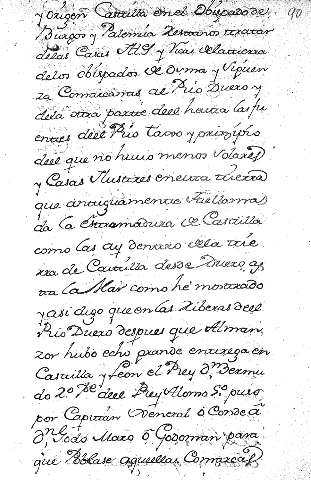 90
y origen Castilla en el Obispado de
Burgos y Palencia Restanos tratar
de las Casas Als y Vias de la tierra
de los obispados de Osma y Siguen
za Comarcanas al Rio Duero y
de la otra parte deel hasta las fu
entes deel Rio taxo y prinzipio
deel que no huuo menos solares
y Casas Ilustres en esta tierra
que antiguamente fue llama
da la estramadura de Castilla
como las ay dentro de la tie
rra de Castilla desde Duero as
ta la Mar como he mostrado
y asi digo que en las Riberas deel
Rio Duero despues que Alman
zor hubo echo grande entrega en
Castilla y Leon el Rey Dn Bermu
do 2º deel Rey Alonso 5º puso
por Capitan General ó Conde á
Dn Godo Maro ó Godoman para
que Poblase aquellas Comarcas